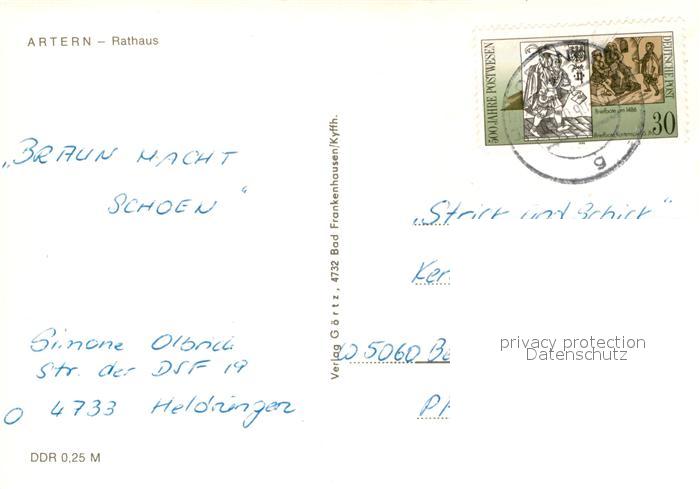 ARTERN – Rathaus
500 JAHRE POSTWESEN
DEUTSCHE POST
Briefbote um 1486
30
g
„BRAUN MACHT
SCHOEN“
Verlag Görtz, 4732 Bad Frankenhausen/Kyffh.
„Strick und Schick“
Ker
W 5060 Be
privacy protection
Datenschutz
Simone Olbrich
Str. der DSF 19
O 4733 Heldrungen
DDR 0,25 M